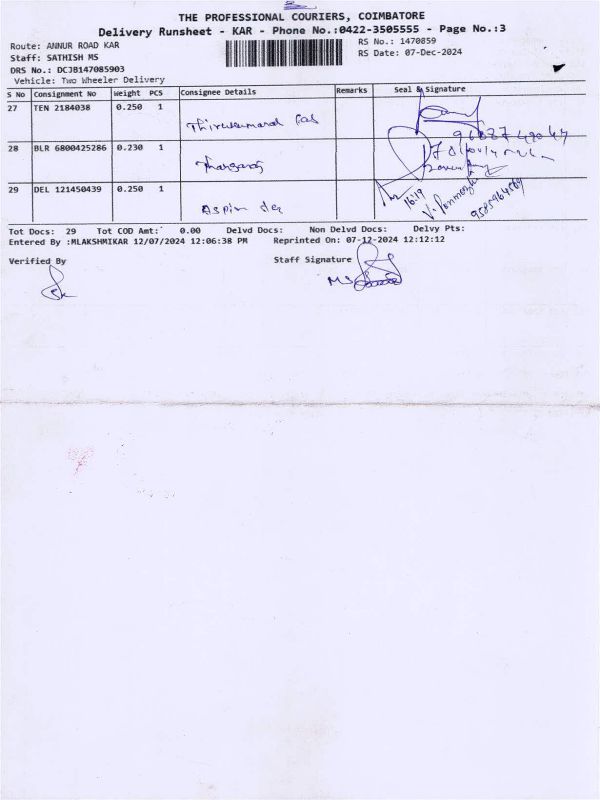 THE PROFESSIONAL COURIERS, COIMBATORE
Delivery Runsheet - KAR - Phone No.:0422-3505555 - Page No.:3
Route: ANNUR ROAD KAR
RS No.: 1470859
Staff: SATHISH MS
RS Date: 07-Dec-2024
DRS No.: DCJB147085903
Vehicle: Two Wheeler Delivery
S No Consignment No Weight PCS Consignee Details Remarks Seal & Signature
27 TEN 2184038 0.250 1
28 BLR 6800425286 0.230 1
Thangaraj
29 DEL 121450439 0.250 1
16:19
Tot Docs: 29 Tot COD Amt: 0.00 Delvd Docs: Non Delvd Docs: Delvy Pts:
Entered By :MLAKSHMIKAR 12/07/2024 12:06:38 PM Reprinted On: 07-12-2024 12:12:12
Verified By
Staff Signature